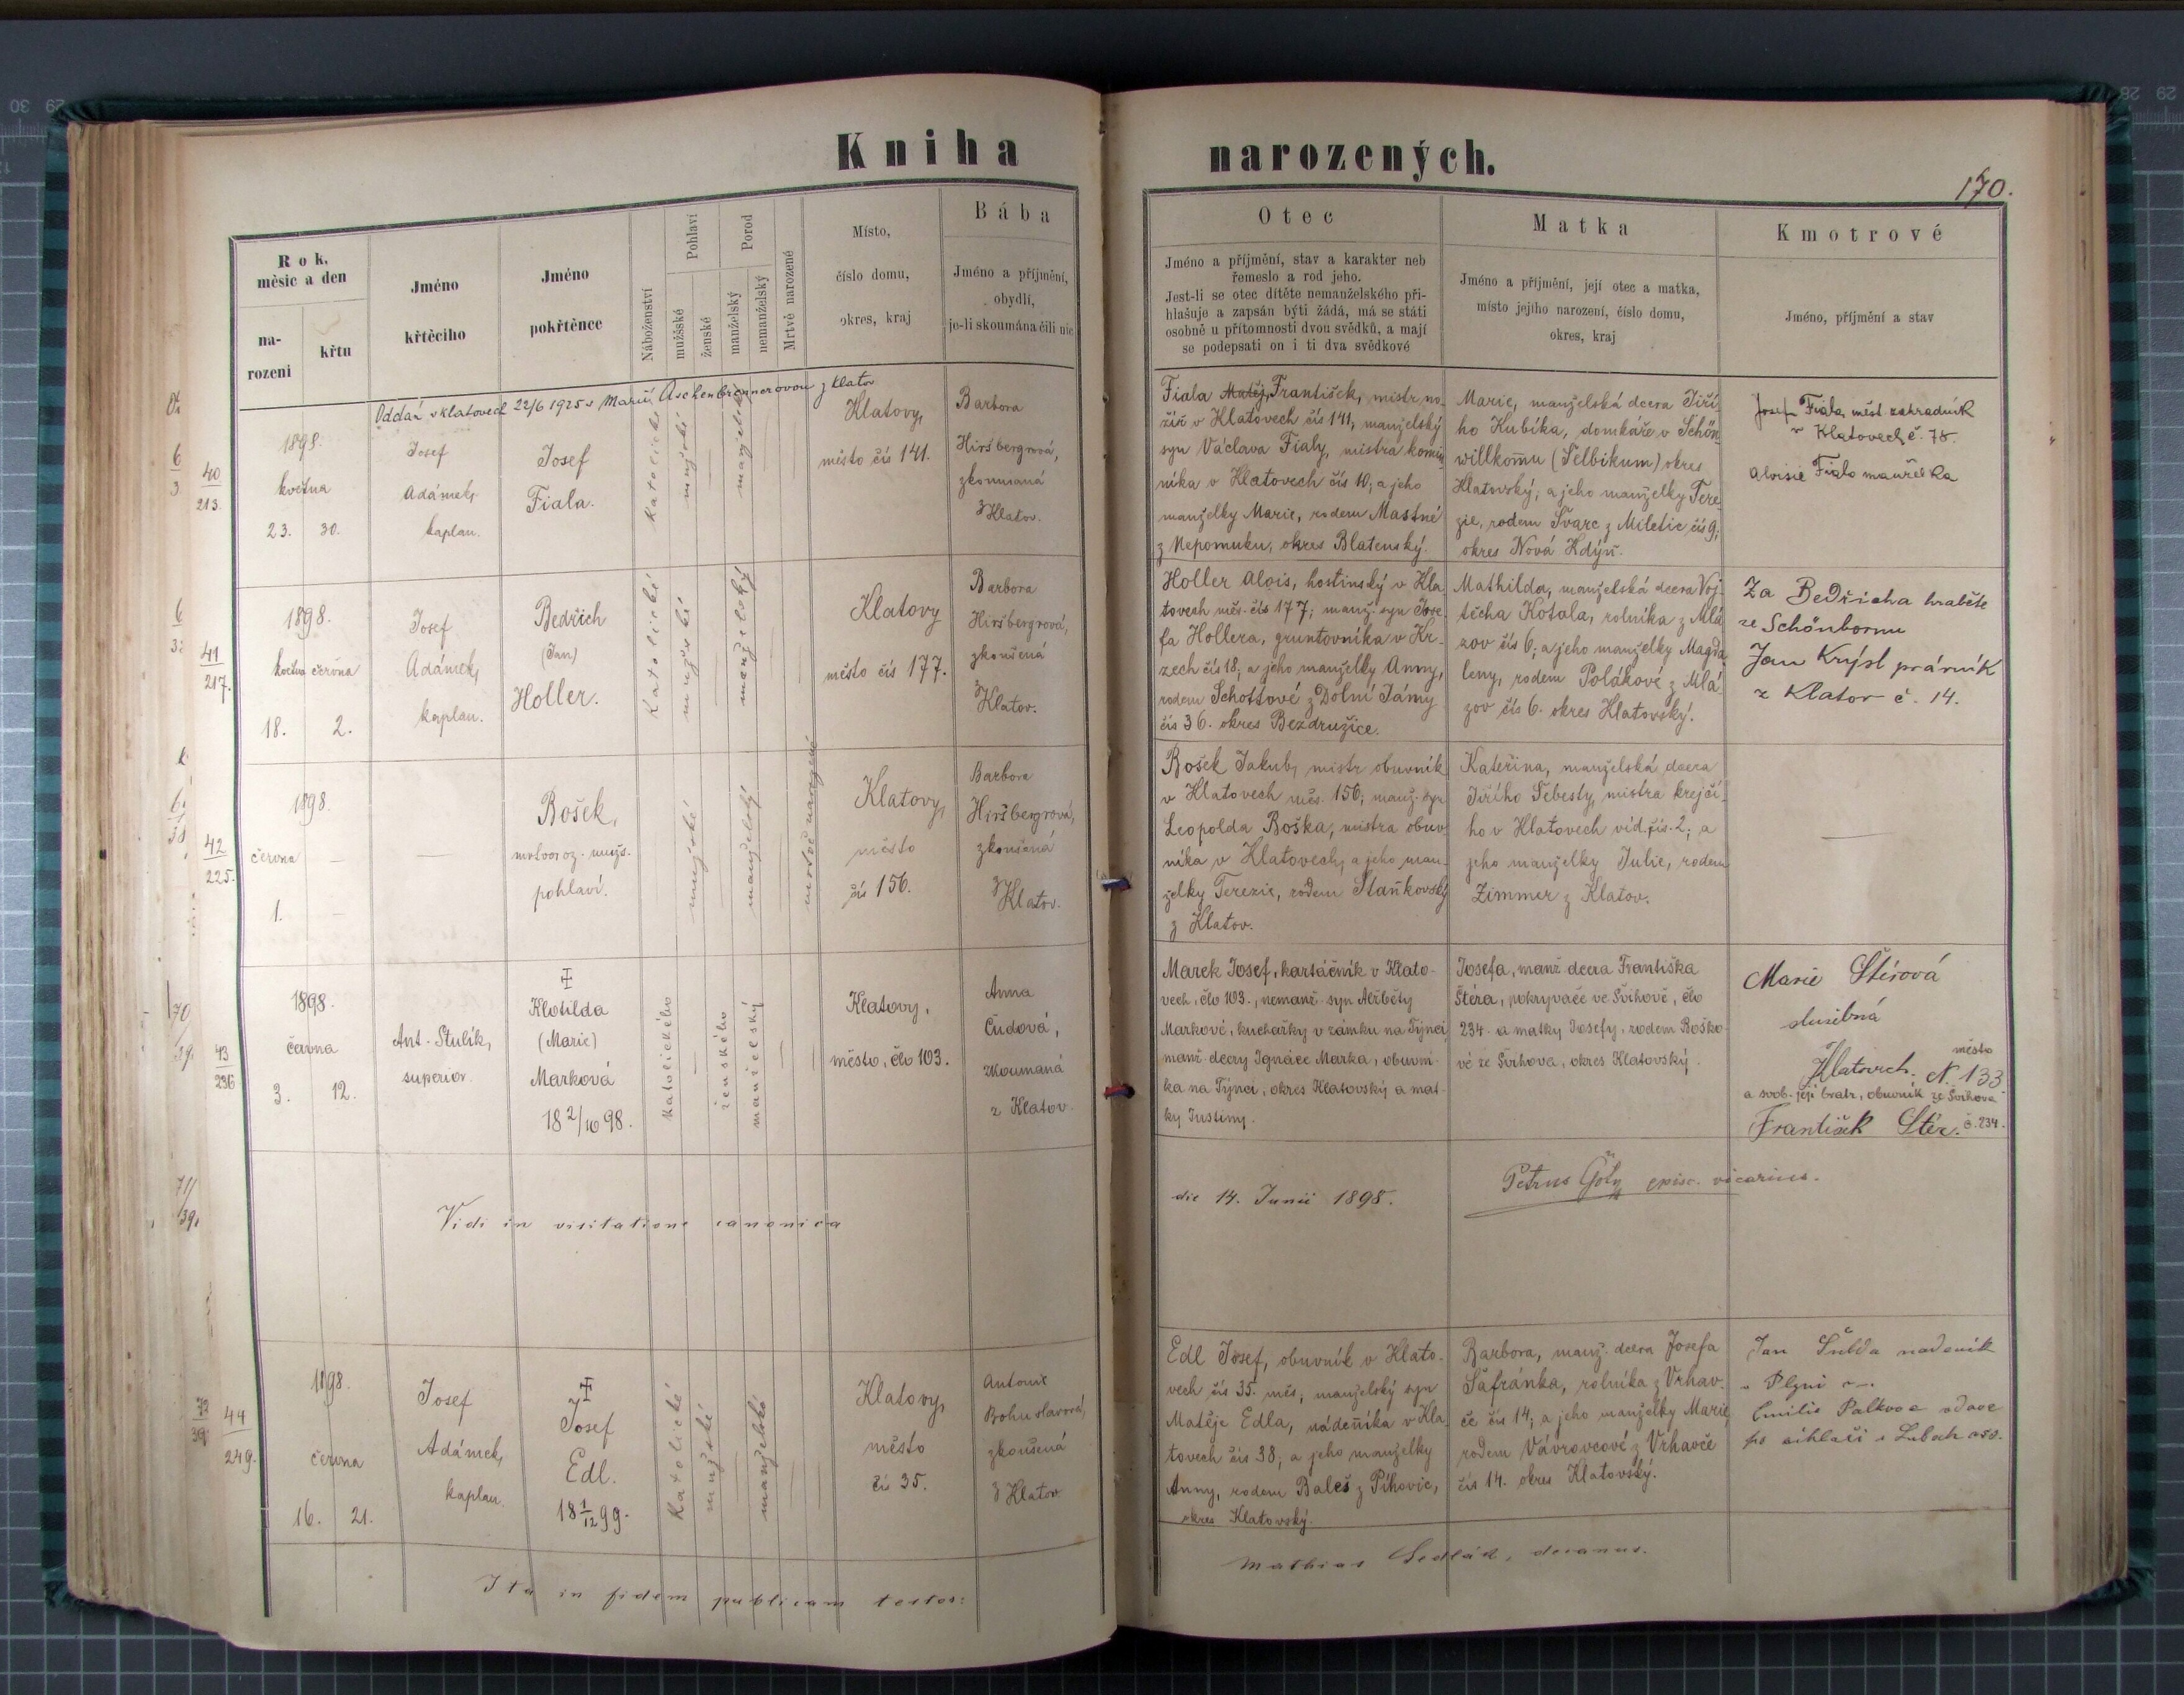 Kniha narozených.
170.
Rok, měsíc a den
narození
křtu
Jméno křtěcího
Jméno pokřtěnce
Náboženství
Pohlaví
mužské
ženské
Porod
manželský
nemanželský
Mrtvě narozené
Místo,
číslo domu,
okres, kraj
Bába
Jméno a příjmění,
obydlí,
je-li skoumána čili nic
Otec
Jméno a příjmění, stav a karakter neb
řemeslo a rod jeho.
Jest-li se otec dítěte nemanželského při-
hlašuje a zapsán býti žádá, má se státi
osobně u přítomnosti dvou svědků, a mají
se podepsati on i ti dva svědkové
Matka
Jméno a příjmění, její otec a matka,
místo jejího narození, číslo domu,
okres, kraj
Kmotrové
Jméno, příjmění a stav
Oddán v Klatovech 22/6 1925 s Marií Aschenbrennerovou z Klatov
40
213.
1898.
května
23. 30.
Josef
Adámek,
kaplan.
Josef
Fiala.
katolické
mužské
manželské
Klatovy,
město čís 141.
Barbora
Hiršbergrová,
zkoumaná
z Klatov.
Fiala Matěj, František, mistr no-
žíř v Klatovech čís 141, manželský
syn Václava Fialy, mistra komi-
níka v Klatovech čís 10; a jeho
manželky Marie, rodem Mastné
z Nepomuku, okres Blatenský.
Marie, manželská dcera Jiří-
ho Kubíka, domkáře v Schön-
willkomu (Šelbikum) okres
Klatovský, a jeho manželky Tere-
zie, rodem Švarc z Miletic čís 9;
okres Nová Kdýň.
Josef Fiala, měst. zahradník
v Klatovech č. 78.
Aloisie Fiala manželka
41
217.
1898.
května června
18. 2.
Josef
Adámek,
kaplan.
Bedřich
(Jan)
Holler.
katolické
mužské
manželský
Klatovy
město čís 177.
Barbora
Hiršbergrová,
zkoušená
z Klatov.
Holler Alois, hostinský v Kla-
tovech měs. čís 177; manž. syn Jose-
fa Hollera, gruntovníka v Kr-
zech čís 18; a jeho manželky Anny,
rodem Schottové z Dolní Jámy
čís 36. okres Bezdružice.
Mathilda, manželská dcera Voj-
těcha Kotala, rolníka z Mlá-
zov čís 6; a jeho manželky Magda-
leny, rodem Polákové z Mlá-
zov čís 6. okres Klatovský.
Za Bedřicha hraběte
ze Schönbornu
Jan Krýsl právník
z Klatov č. 14.
42
225.
1898.
června
1.
Bošek,
mrtvoroz. mužs.
pohlaví.
mužské
manželský
mrtvě narozené
Klatovy,
město
čís 156.
Barbora
Hiršbergrová,
zkoušená
z Klatov.
Bošek Jakub, mistr obuvník
v Klatovech měs. 156; manž. syn
Leopolda Boška, mistra obuv-
níka v Klatovech, a jeho man-
želky Terezie, rodem Staňkovský
z Klatov.
Kateřina, manželská dcera
Jiřího Šebesty, mistra krejčí-
ho v Klatovech víd. čís. 2; a
jeho manželky Julie, rodem
Zimmer z Klatov.
43
236
1898.
června
3. 12.
Ant. Stulík,
superior.
Klotilda
(Marie)
Marková
18 2/10 98.
katolického
ženského
manželský
Klatovy,
město, člo 103.
Anna
Čudová,
zkoumaná
z Klatov.
Marek Josef, kartáčník v Klato-
vech, člo 103., nemanž. syn Alžběty
Markové, kuchařky v zámku na Týnci,
manž. dcery Ignáce Marka, obuvní-
ka na Týnci, okres Klatovský a mat-
ky Justiny.
Josefa, manž. dcera Františka
Štéra, pokrývače ve Švihově, člo
234. a matky Josefy, rodem Boško-
vé ze Švihova, okres Klatovský.
Marie Štérová
služebná
Klatovech. město N. 133
a svob. její bratr, obuvník ze Švihova
František Stér. č. 234.
Vidi in visitatione canonica
die 14. Junii 1898.
Petrus episc. vicarius.
44
249.
1898.
června
16. 21.
Josef
Adámek,
kaplan.
Josef
Edl.
18 1/12 99.
katolické
mužské
manželské
Klatovy,
město
čís 35.
Antonie
Bohuslavová,
zkoušená
z Klatov
Edl Josef, obuvník v Klato-
vech čís 35. měs; manželský syn
Matěje Edla, nádeníka v Kla-
tovech čís 38; a jeho manželky
Anny, rodem Baleš z Pihovic,
okres Klatovský.
Barbora, manž. dcera Josefa
Šafránka, rolníka z Vrhav-
če čís 14; a jeho manželky Marie,
rodem Vávrovcové z Vrhavče
čís 14. okres Klatovský.
Jan nadeník
v Plzni
Emilie
Ita in fidem publicam testor:
Mathias Sedlák, decanus.